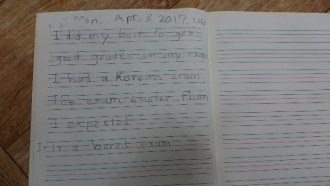 Mon. Apr. 3. 2017.
I did my best to get
good grades on my exam
I had a Korean exam
the exam easier than
I expected
It is a bored exam